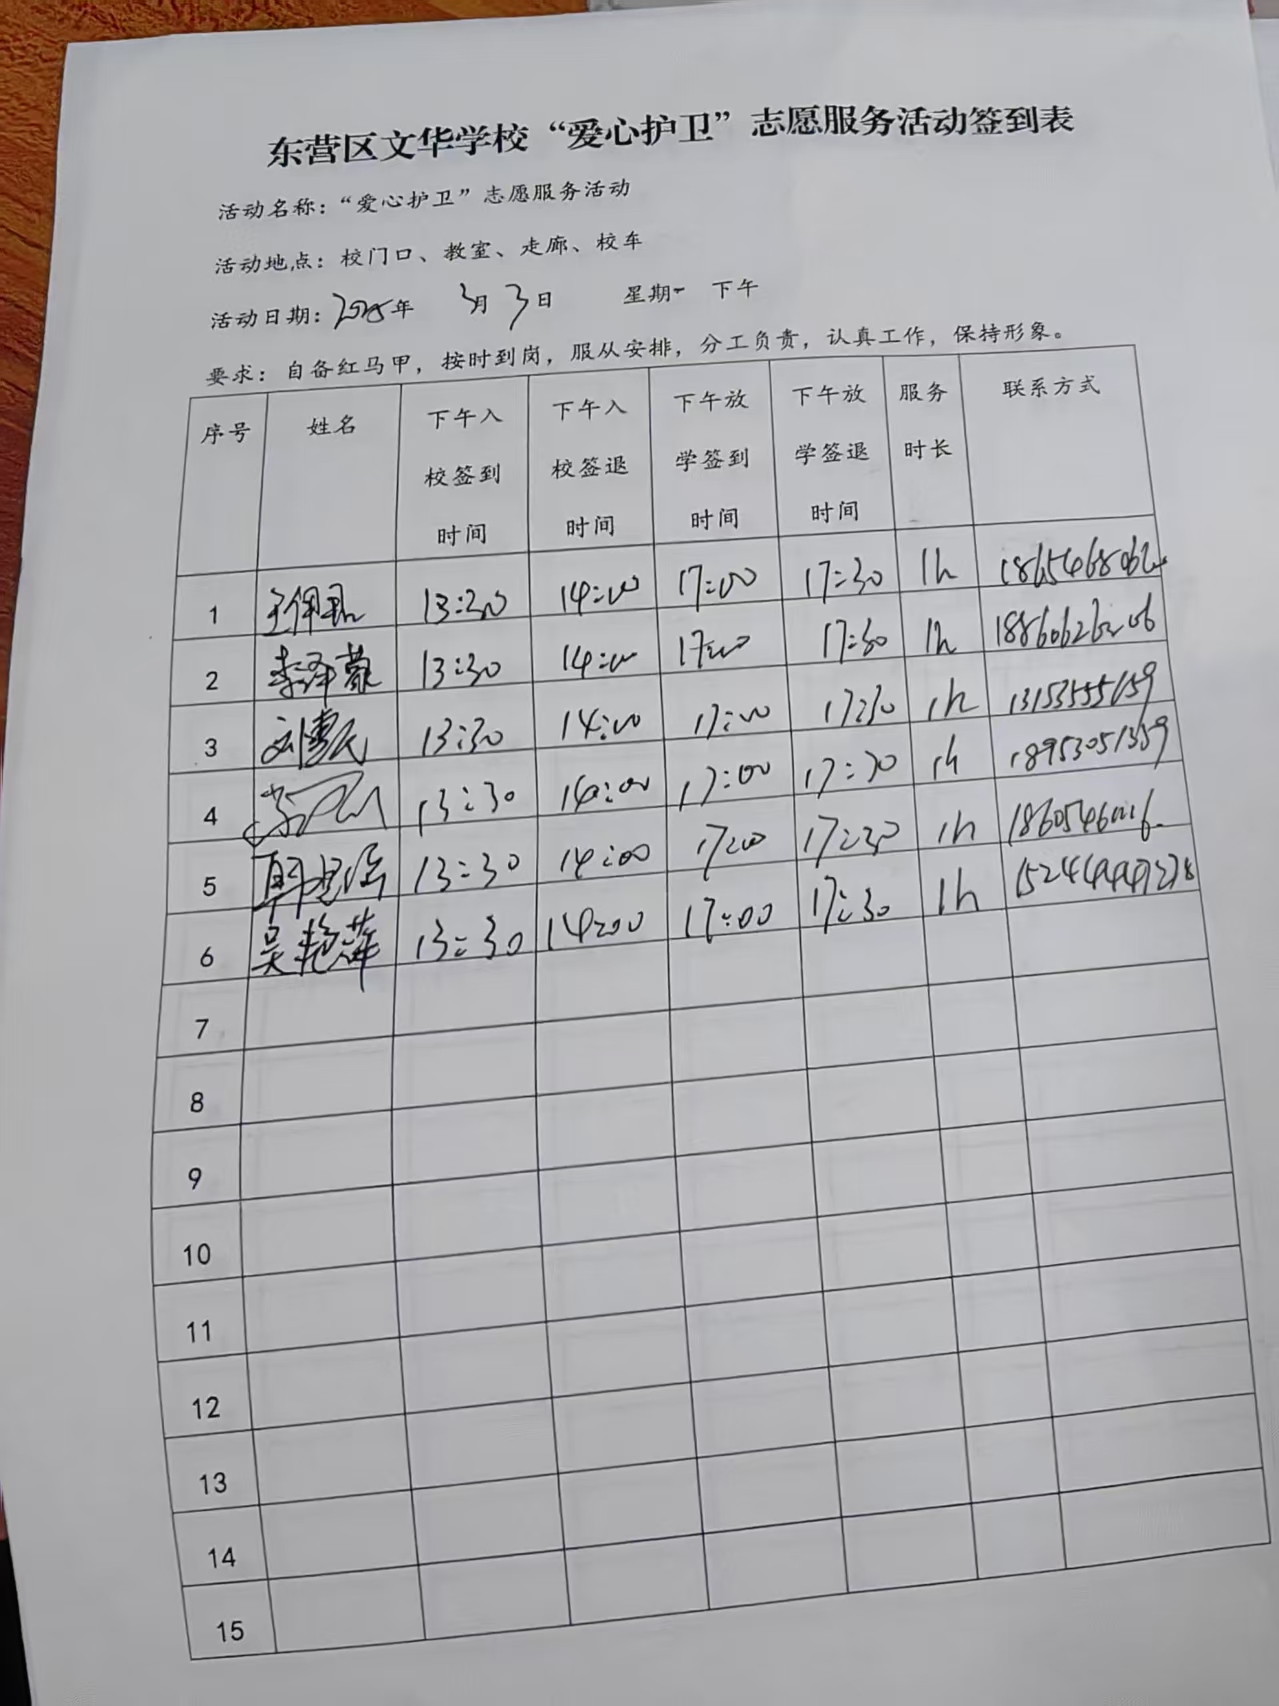 东营区文华学校“爱心护卫”志愿服务活动签到表
活动名称：“爱心护卫”志愿服务活动
活动地点：校门口、教室、走廊、校车
活动日期：2025年 3月3日 星期一 下午
要求：自备红马甲，按时到岗，服从安排，分工负责，认真工作，保持形象。
序号 姓名 下午入校签到时间 下午入校签退时间 下午放学签到时间 下午放学签退时间 服务时长 联系方式
1 13:30 14:00 17:00 17:30 1h
2 13:30 14:00 17:00 17:30 1h
3 13:30 14:00 17:00 17:30 1h 13153555159
4 13:30 14:00 17:00 17:30 1h 18953051359
5 13:30 14:00 17:00 17:30 1h
6 吴艳萍 13:30 14:00 17:00 17:30 1h
7
8
9
10
11
12
13
14
15